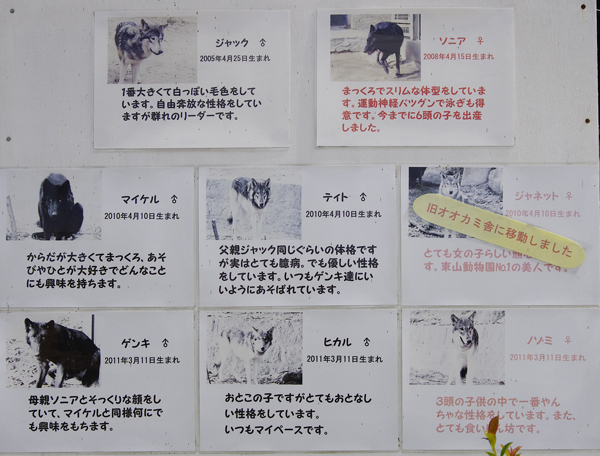 ジャック ♂
2005年4月25日生まれ
1番大きくて白っぽい毛色をして
います。自由奔放な性格をしてい
ますが群れのリーダーです。
ソニア ♀
2008年4月15日生まれ
まっくろでスリムな体型をしていま
す。運動神経バツグンで泳ぎも得
意です。今までに6頭の子を出産
しました。
マイケル ♂
2010年4月10日生まれ
からだが大きくてまっくろ、あそ
びやひとが大好きでどんなこと
にも興味を持ちます。
テイト ♂
2010年4月10日生まれ
父親ジャック同じぐらいの体格です
が実はとても臆病。でも優しい性格
をしています。いつもゲンキ達にい
いようにあそばれています。
ジャネット ♀
2010年4月10日生まれ
旧オオカミ舎に移動しました
とても女の子らしい
す。東山動物園No.1の美人です。
ゲンキ ♂
2011年3月11日生まれ
母親ソニアとそっくりな顔をし
ていて、マイケルと同様何にで
も興味をもちます。
ヒカル ♂
2011年3月11日生まれ
おとこの子ですがとてもおとなし
い性格をしています。
いつもマイペースです。
ノゾミ ♀
2011年3月11日生まれ
3頭の子供の中で一番やん
ちゃな性格をしています。また、
とても食いしん坊です。